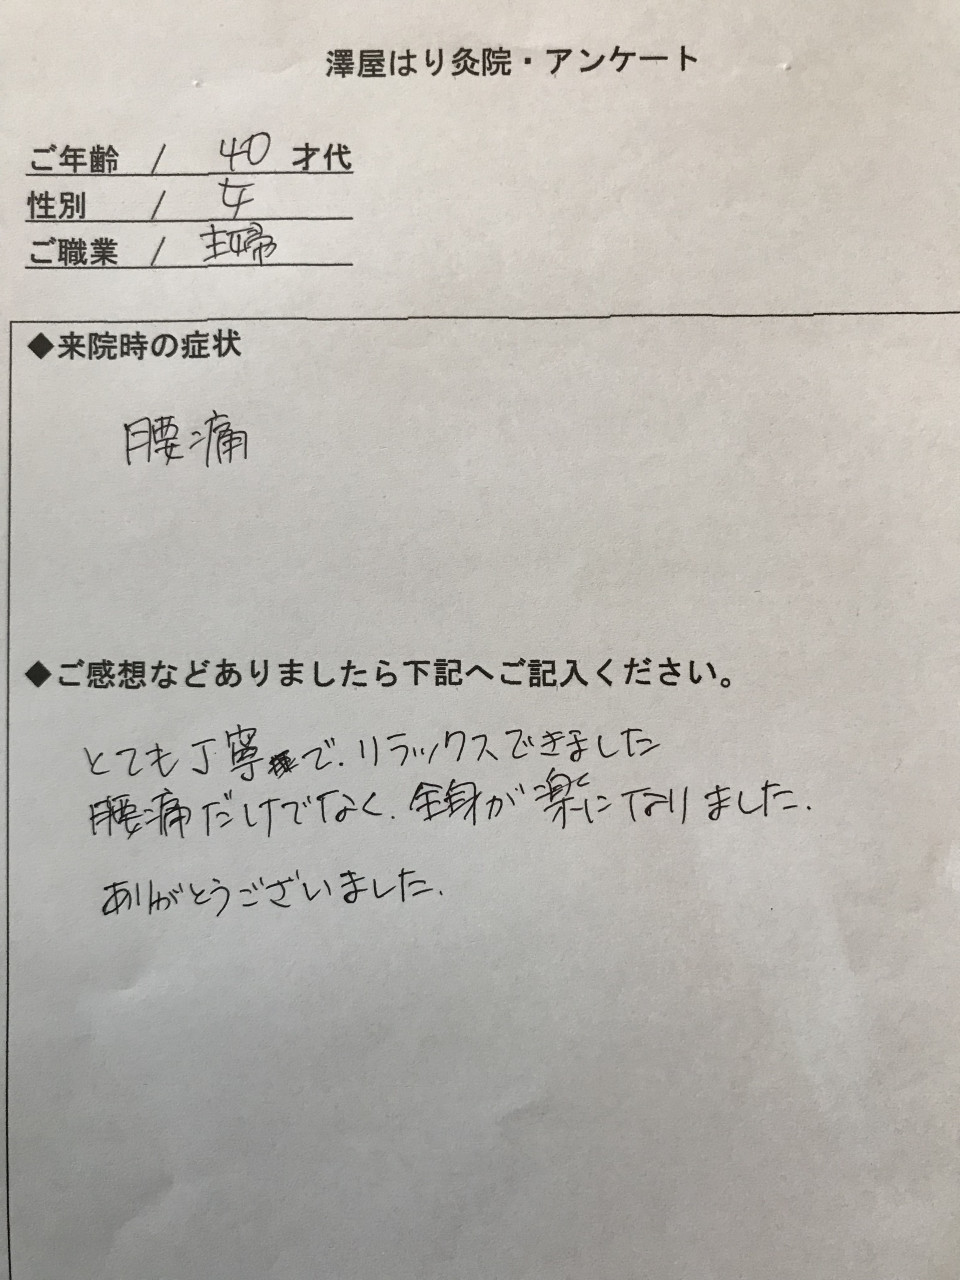 澤屋はり灸院・アンケート
ご年齢 / 40 才代
性別 / 女
ご職業 / 主婦
◆来院時の症状
腰痛
◆ご感想などありましたら下記へご記入ください。
とても丁寧で、リラックスできました
腰痛だけでなく、全身が楽になりました。
ありがとうございました。